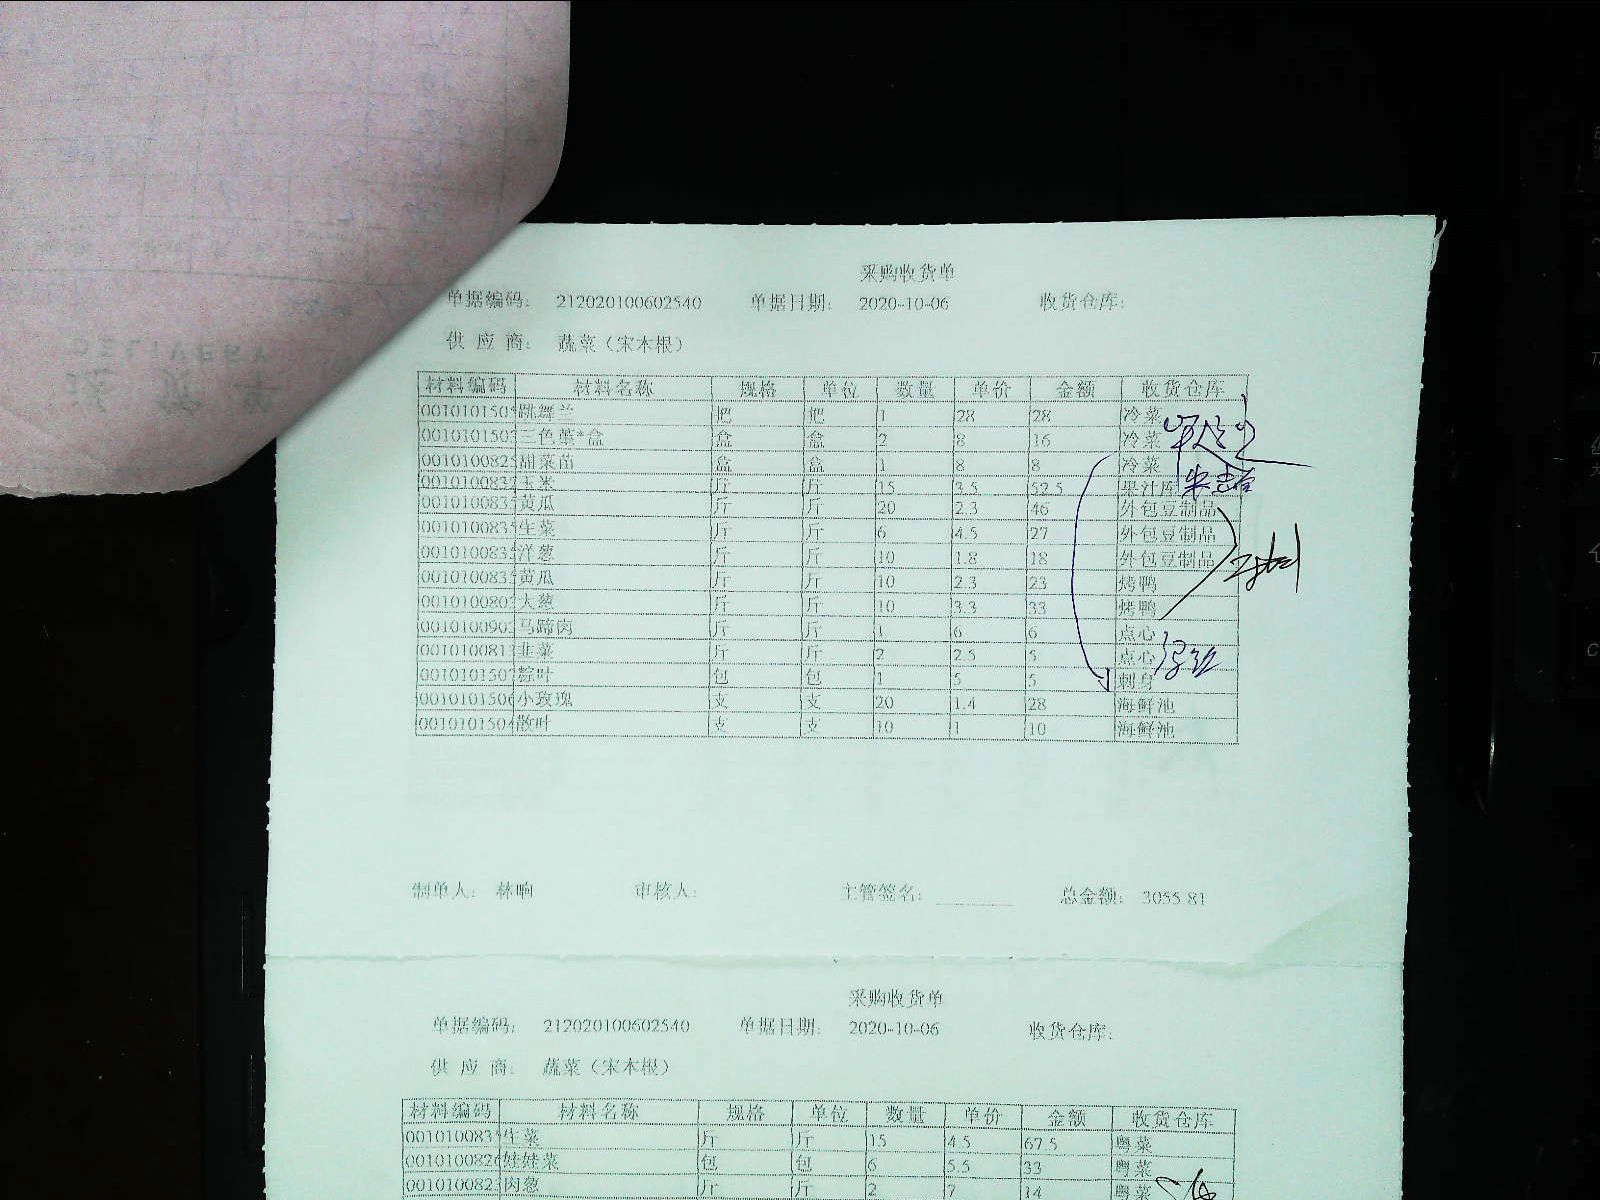 DELIVERY
采购收货单
单据编码: 212020100602540 单据日期: 2020-10-06 收货仓库:
供 应 商: 蔬菜（宋本根）
材料编码 材料名称 规格 单位 数量 单价 金额 收货仓库
001010150 跳舞兰 把 把 1 28 28 冷菜
001010150 三色堇*盒 盒 盒 2 8 16 冷菜
001010082 甜菜苗 盒 盒 1 8 8 冷菜
001010083 玉米 斤 斤 15 3.5 52.5 果汁库
001010083 黄瓜 斤 斤 20 2.3 46 外包豆制品
001010083 生菜 斤 斤 6 4.5 27 外包豆制品
001010083 洋葱 斤 斤 10 1.8 18 外包豆制品
001010083 黄瓜 斤 斤 10 2.3 23 烤鸭
001010080 大葱 斤 斤 10 3.3 33 烤鸭
001010090 马蹄肉 斤 斤 1 6 6 点心
001010081 韭菜 斤 斤 2 2.5 5 点心
001010150 粽叶 包 包 1 5 5 刺身
001010150 小玫瑰 支 支 20 1.4 28 海鲜池
001010150 散叶 支 支 10 1 10 海鲜池
制单人: 林响 审核人: 主管签名: 总金额: 3055.81
采购收货单
单据编码: 212020100602540 单据日期: 2020-10-06 收货仓库:
供 应 商: 蔬菜（宋本根）
材料编码 材料名称 规格 单位 数量 单价 金额 收货仓库
001010083 生菜 斤 斤 15 4.5 67.5 粤菜
001010082 娃娃菜 包 包 6 5.5 33 粤菜
001010082 肉葱 斤 斤 2 7 14 粤菜